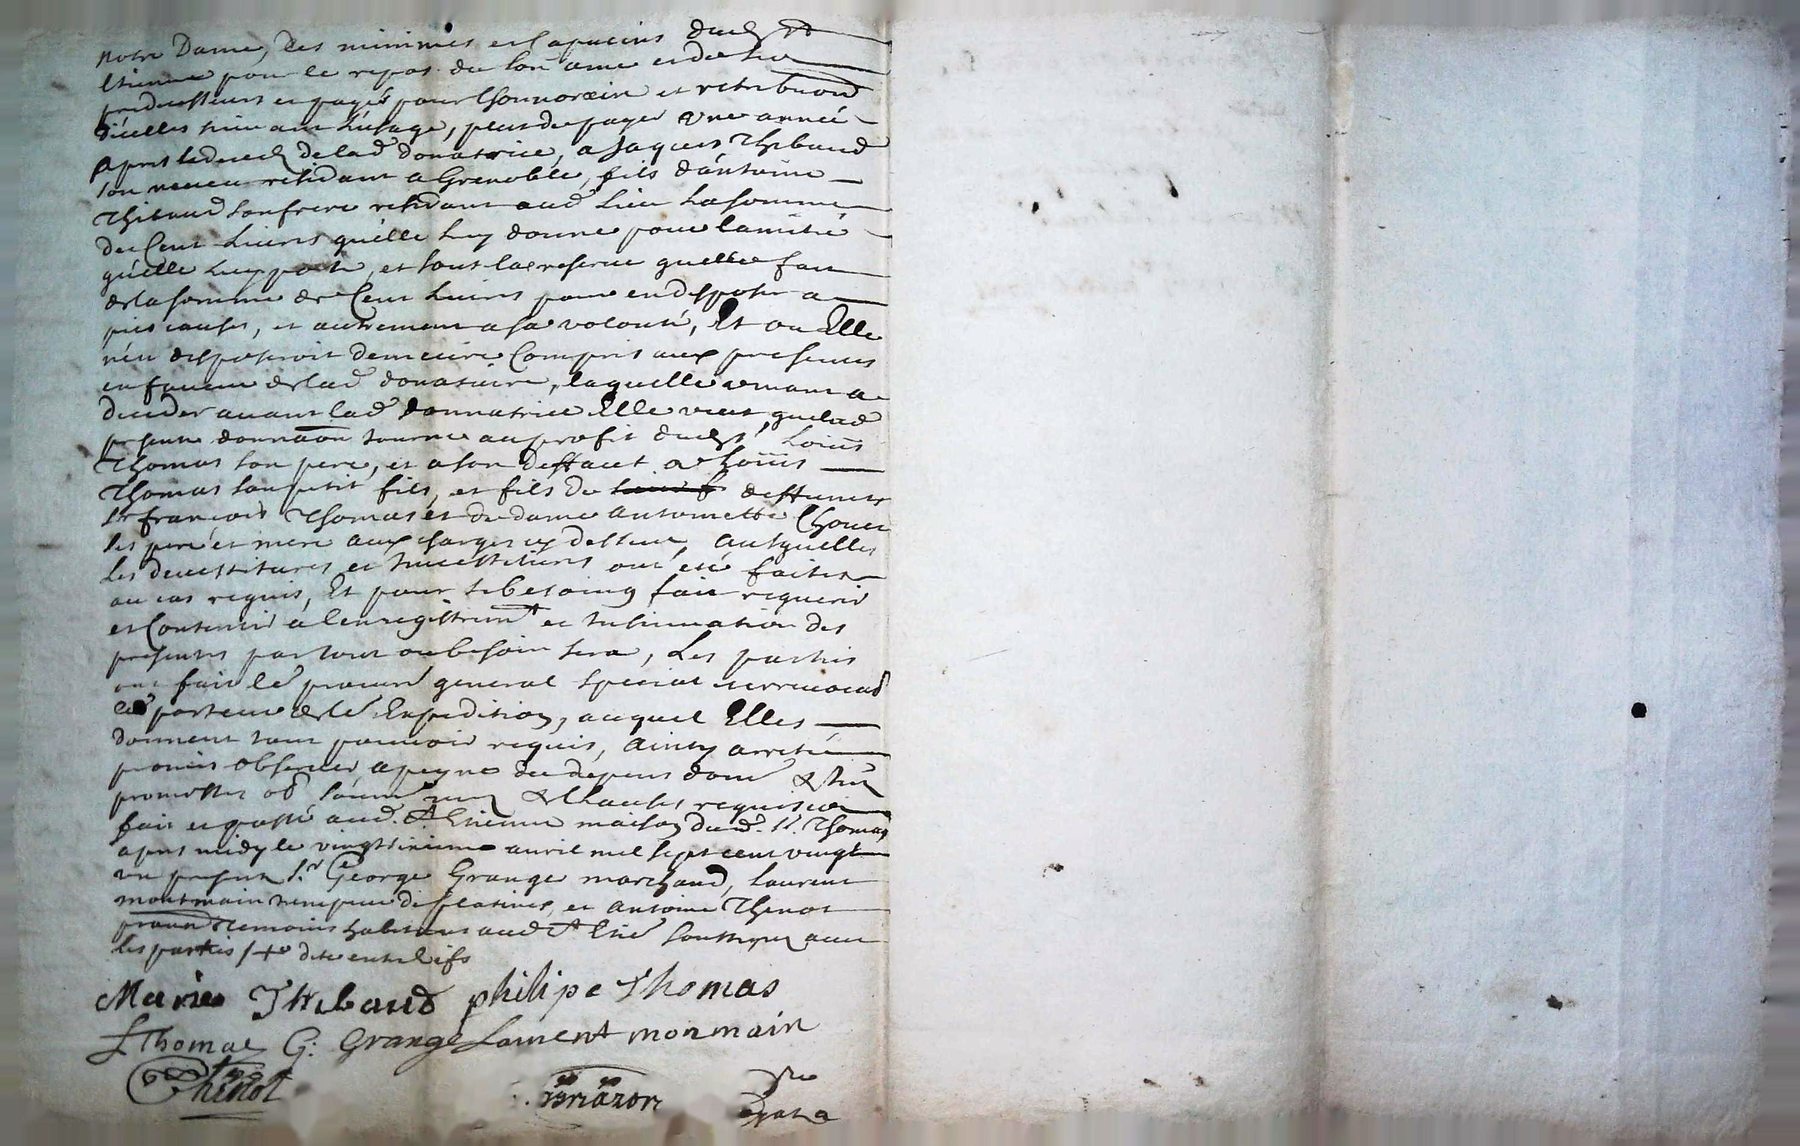 notre Dame, des minimes et Capucins dud St
Etienne pour le repos de son ame et de ses
predecesseurs et payés pour lhonnoraire et retribuoñ
dicelles suivant lusage, plus de payer une année
apres le deces de lad donatrice, a Jaques Thibaud
son neveu residant a Grenoble, fils dantoine
Thibaud son frere residant aud lieu la somme
de Cent livres quelle luy donne pour lamitié
quelle luy porte, et sous la reserve quelle fait
de la somme de Cent livres pour en disposer a
pies causes, et autrement a sa volonté, Et ou Elle
nen disposeroit demeure Compris aux presentes
en faveur de lad donataire, laquelle venant a
deceder avant lad donnatrice Elle veut que lad
presente donnaoñ tourne au profit dud Sr Loüis
Thomas son pere, et a son deffaut a Loüis
Thomas son petit fils, et fils de deffunts
Sr françois Thomas et de dame antoinette Chover
ses pere et mere aux charges cy dessus, ausquelles
les devestitures et investitures ont été faites
au cas requis, Et pour si besoing fait requerir
et Consentir a lenregistremt et insinuation des
presentes par tout ou besoin sera, Les parties
ont fait le procur general special irrevocab
le porteur de le Expedition, auquel Elles
donnent tout pouvoir requis, ainsy arresté
promis observer, a peyne de depens dom &
promettes ob &clauses, requises
fait et passé aud. St Etienne maison dud. Sr. Thomas
apres midy le vingtsixieme avril mil sept cent vingt
un presents Sr. George Grange marchand, Laurent
montmain rempeur de platines, et antoine Thenot
pratn temoins habitans aud St Etie soussignes avec
les parties /+ dite entelifs
Marie Thibaud philipe Thomas
LThomas G: Grange Laurent monmain
Thenot